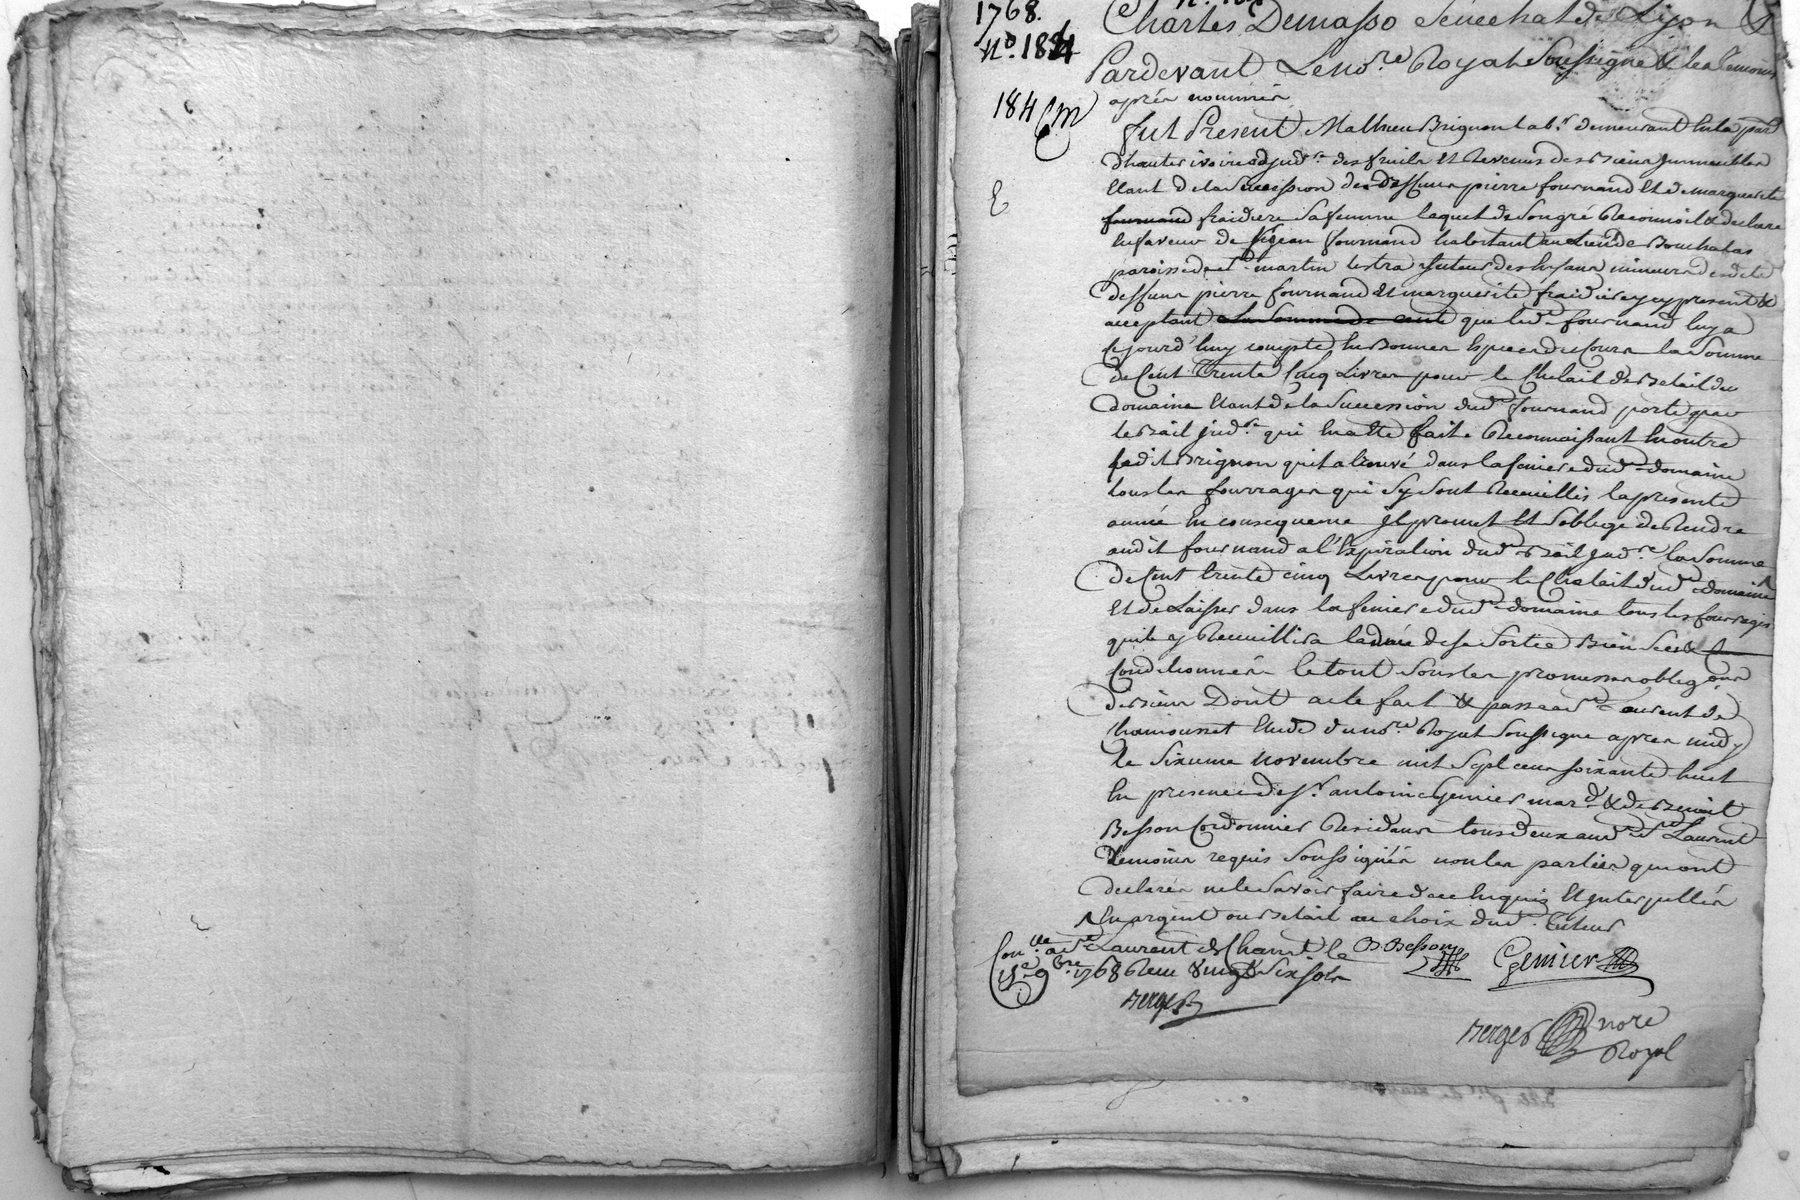 1768.
n°. 184
184
Charles Demasso Senechal de Lyon
Pardevant Le no.re Royal Soussigné & les temoins
après nommés
fut Present Mathieu Brignon lab.r demeurant en la par.
d'hauterivoire adjud.re des fruits et Revenus des Biens Immeubles
Etant de la Succession des deffunts pierre fournand Et de marguerite
fraidiere Sa femme lequel de Son gré Reconnoit & declare
En faveur de Jean fournand habitant au Lieu de Bouchalas
paroisse de st. martin lestra tuteur des Enfans mineurs desdits
deffuns pierre fournand Et marguerite fraidiere y present &
acceptant que led. fournand luy a
Ce jourd'huy compté En Bonnes Especes de Cours la Somme
de Cent Trente Cinq Livres pour le Chelait de Betail du
domaine Etant de la Succession dud. fournand porté par
le Bail jud.re qui En a eté fait. Reconnaissant En outre
ledit Brignon qu'il a trouvé dans la feniere dud. domaine
tous les fourrages qui Sy Sont Recueillis la presente
année En consequence Il promet Et S'oblige de Rendre
audit fournand a l'Expiration dud. Bail Jud.re la Somme
de Cent trente cinq Livres pour le Chelait dud. domaine
Et de Laisser dans la feniere dud. domaine tous les fourrages
qu'il y Recueillira l'année de Sa Sortie Bien Secs &
Conditionnés le tout Sous les promesses oblig.ons
de Biens Dont acte fait & passé a s.t Laurent de
Chamousset Etude du no.re Royal Soussigné apres midy
le Sixieme Novembre mil Sept cens soixante huit
En presence de S.r antoine Genier mar.d & de Benoit
Besson Cordonnier Residans tous deux aud. S.t Laurent
temoins requis Soussignés non les parties qui ont
declarés ne le Savoir faire de ce Enquis Et Interpellés
En argent ou Betail au choix dud. tuteur
Con.lle a S.t Laurent de Cham.t le
15.e 9bre 1768 Reçu Vingt Six Sols
Berger
B Besson
Genier
Berger nore
Royal